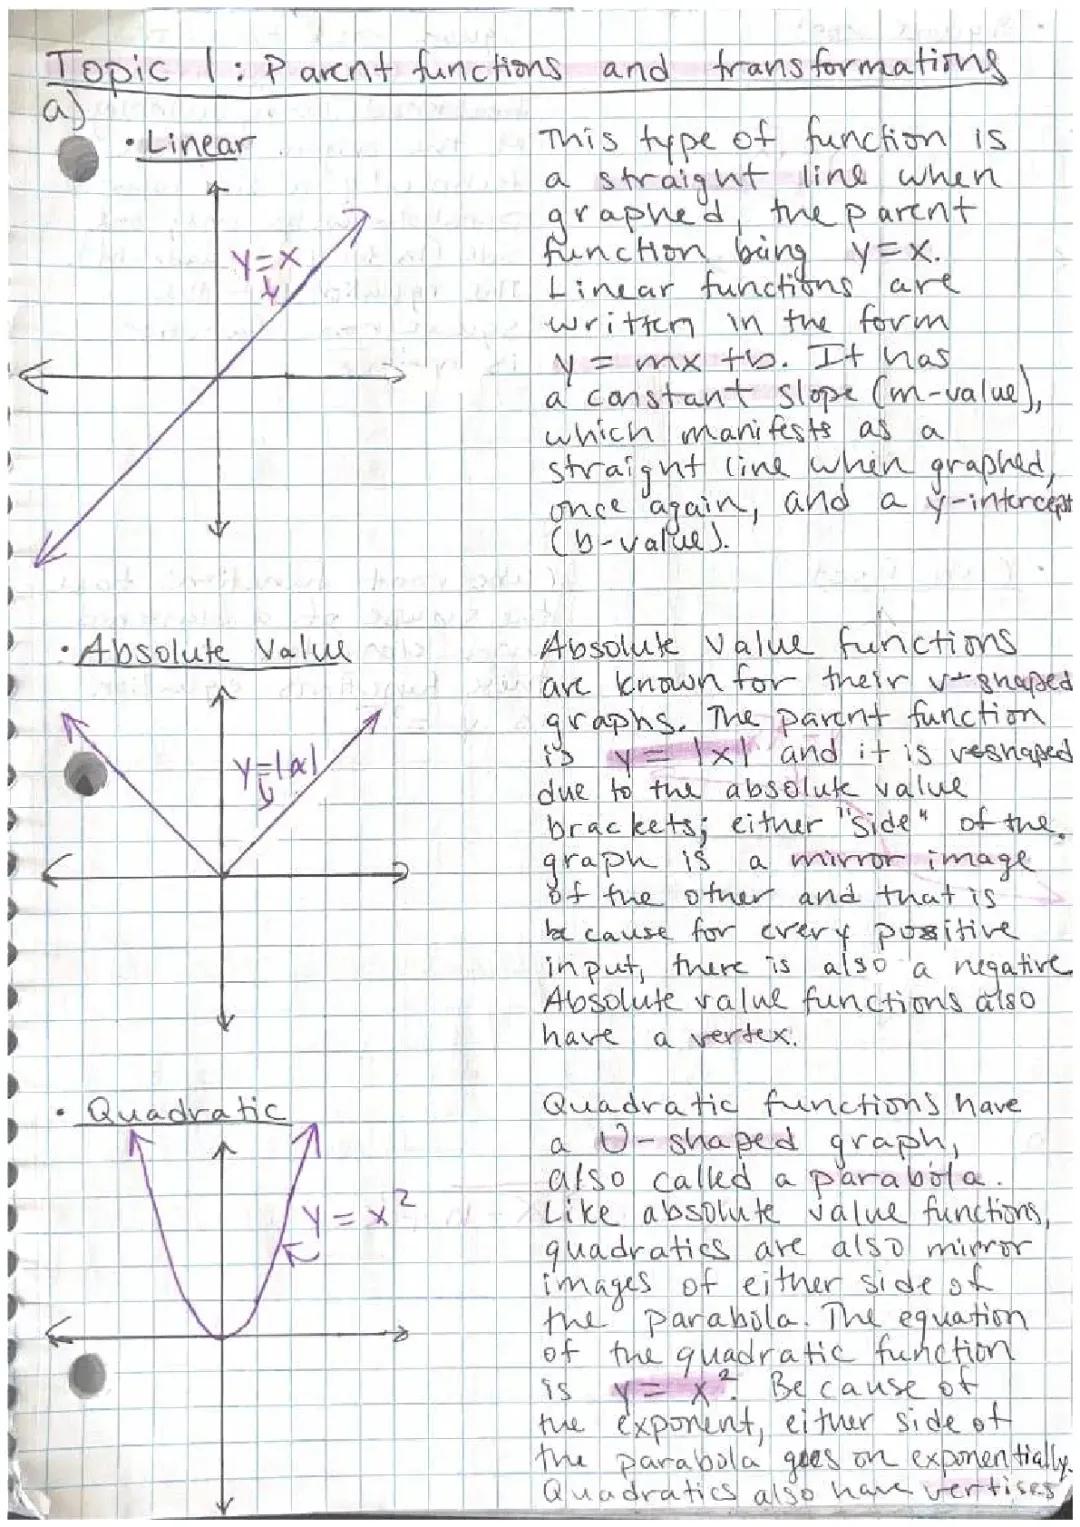 Topic 1: Parent functions and transformations
a)
• Linear
y=x
This type of function is
a straight line when
graphed, the parent
function being y=x.
Linear functions are
written in the form
y = mx +b. It has
a constant slope (m-value),
which manifests as a
straight line when graphed,
once again, and a y-intercept
(b-value).
• Absolute Value
y=|x|
Absolute Value functions
are known for their v-shaped
graphs. The parent function
is y = |x| and it is veshaped
due to the absolute value
brackets; either "side" of the
graph is a mirror image
of the other and that is
because for every positive
input, there is also a negative.
Absolute value functions also
have a vertex.
• Quadratic
y = x²
Quadratic functions have
a U-shaped graph,
also called a parabola.
Like absolute value functions,
quadratics are also mirror
images of either side of
the parabola. The equation
of the quadratic function
is y = x². Because of
the exponent, either side of
the parabola goes on exponentially.
Quadratics also have vertises